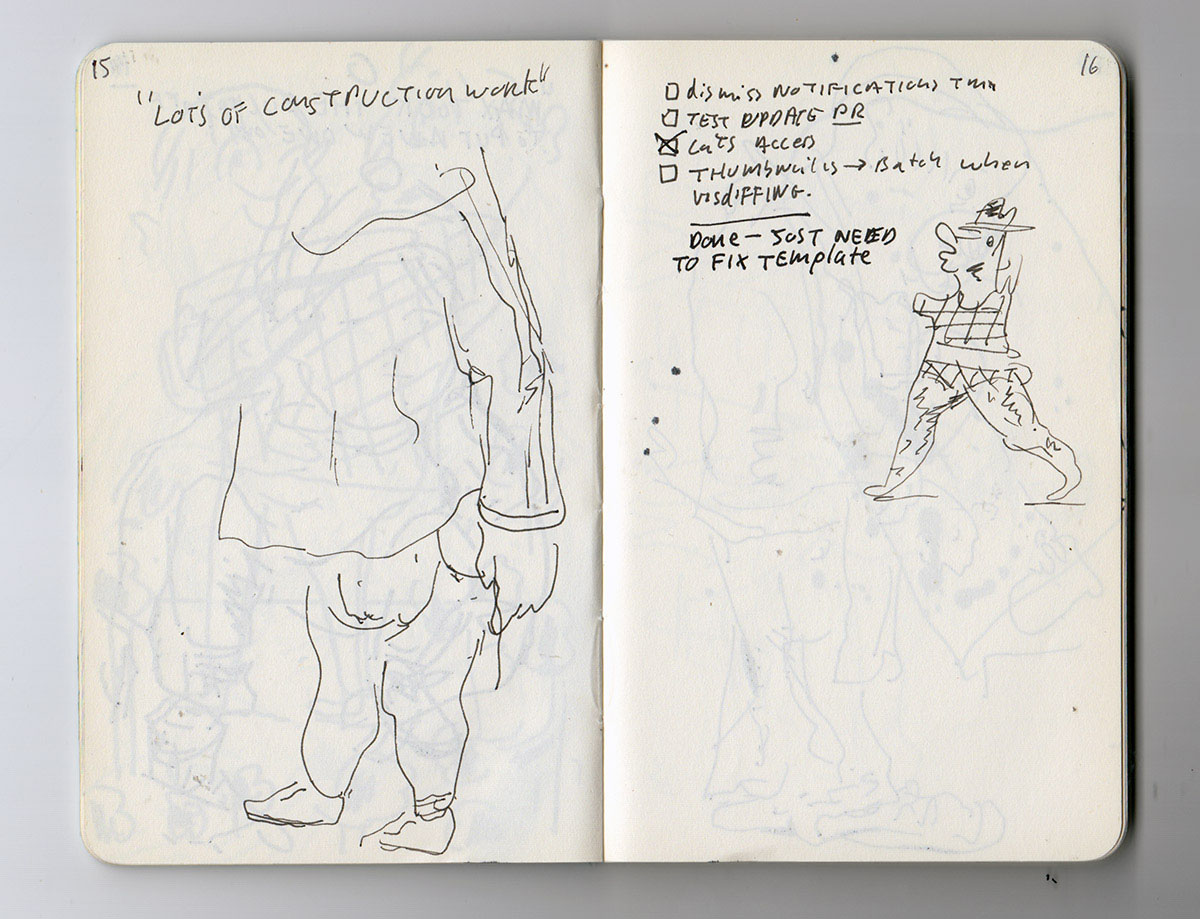 15
"LOTS OF CONSTRUCTION WORK"
16
dismiss NOTIFICATIONS
TEST UPDATE PR
Cats Access
THUMBNAILS → Batch when
visdiffing.
Done — JUST NEED
TO FIX Template